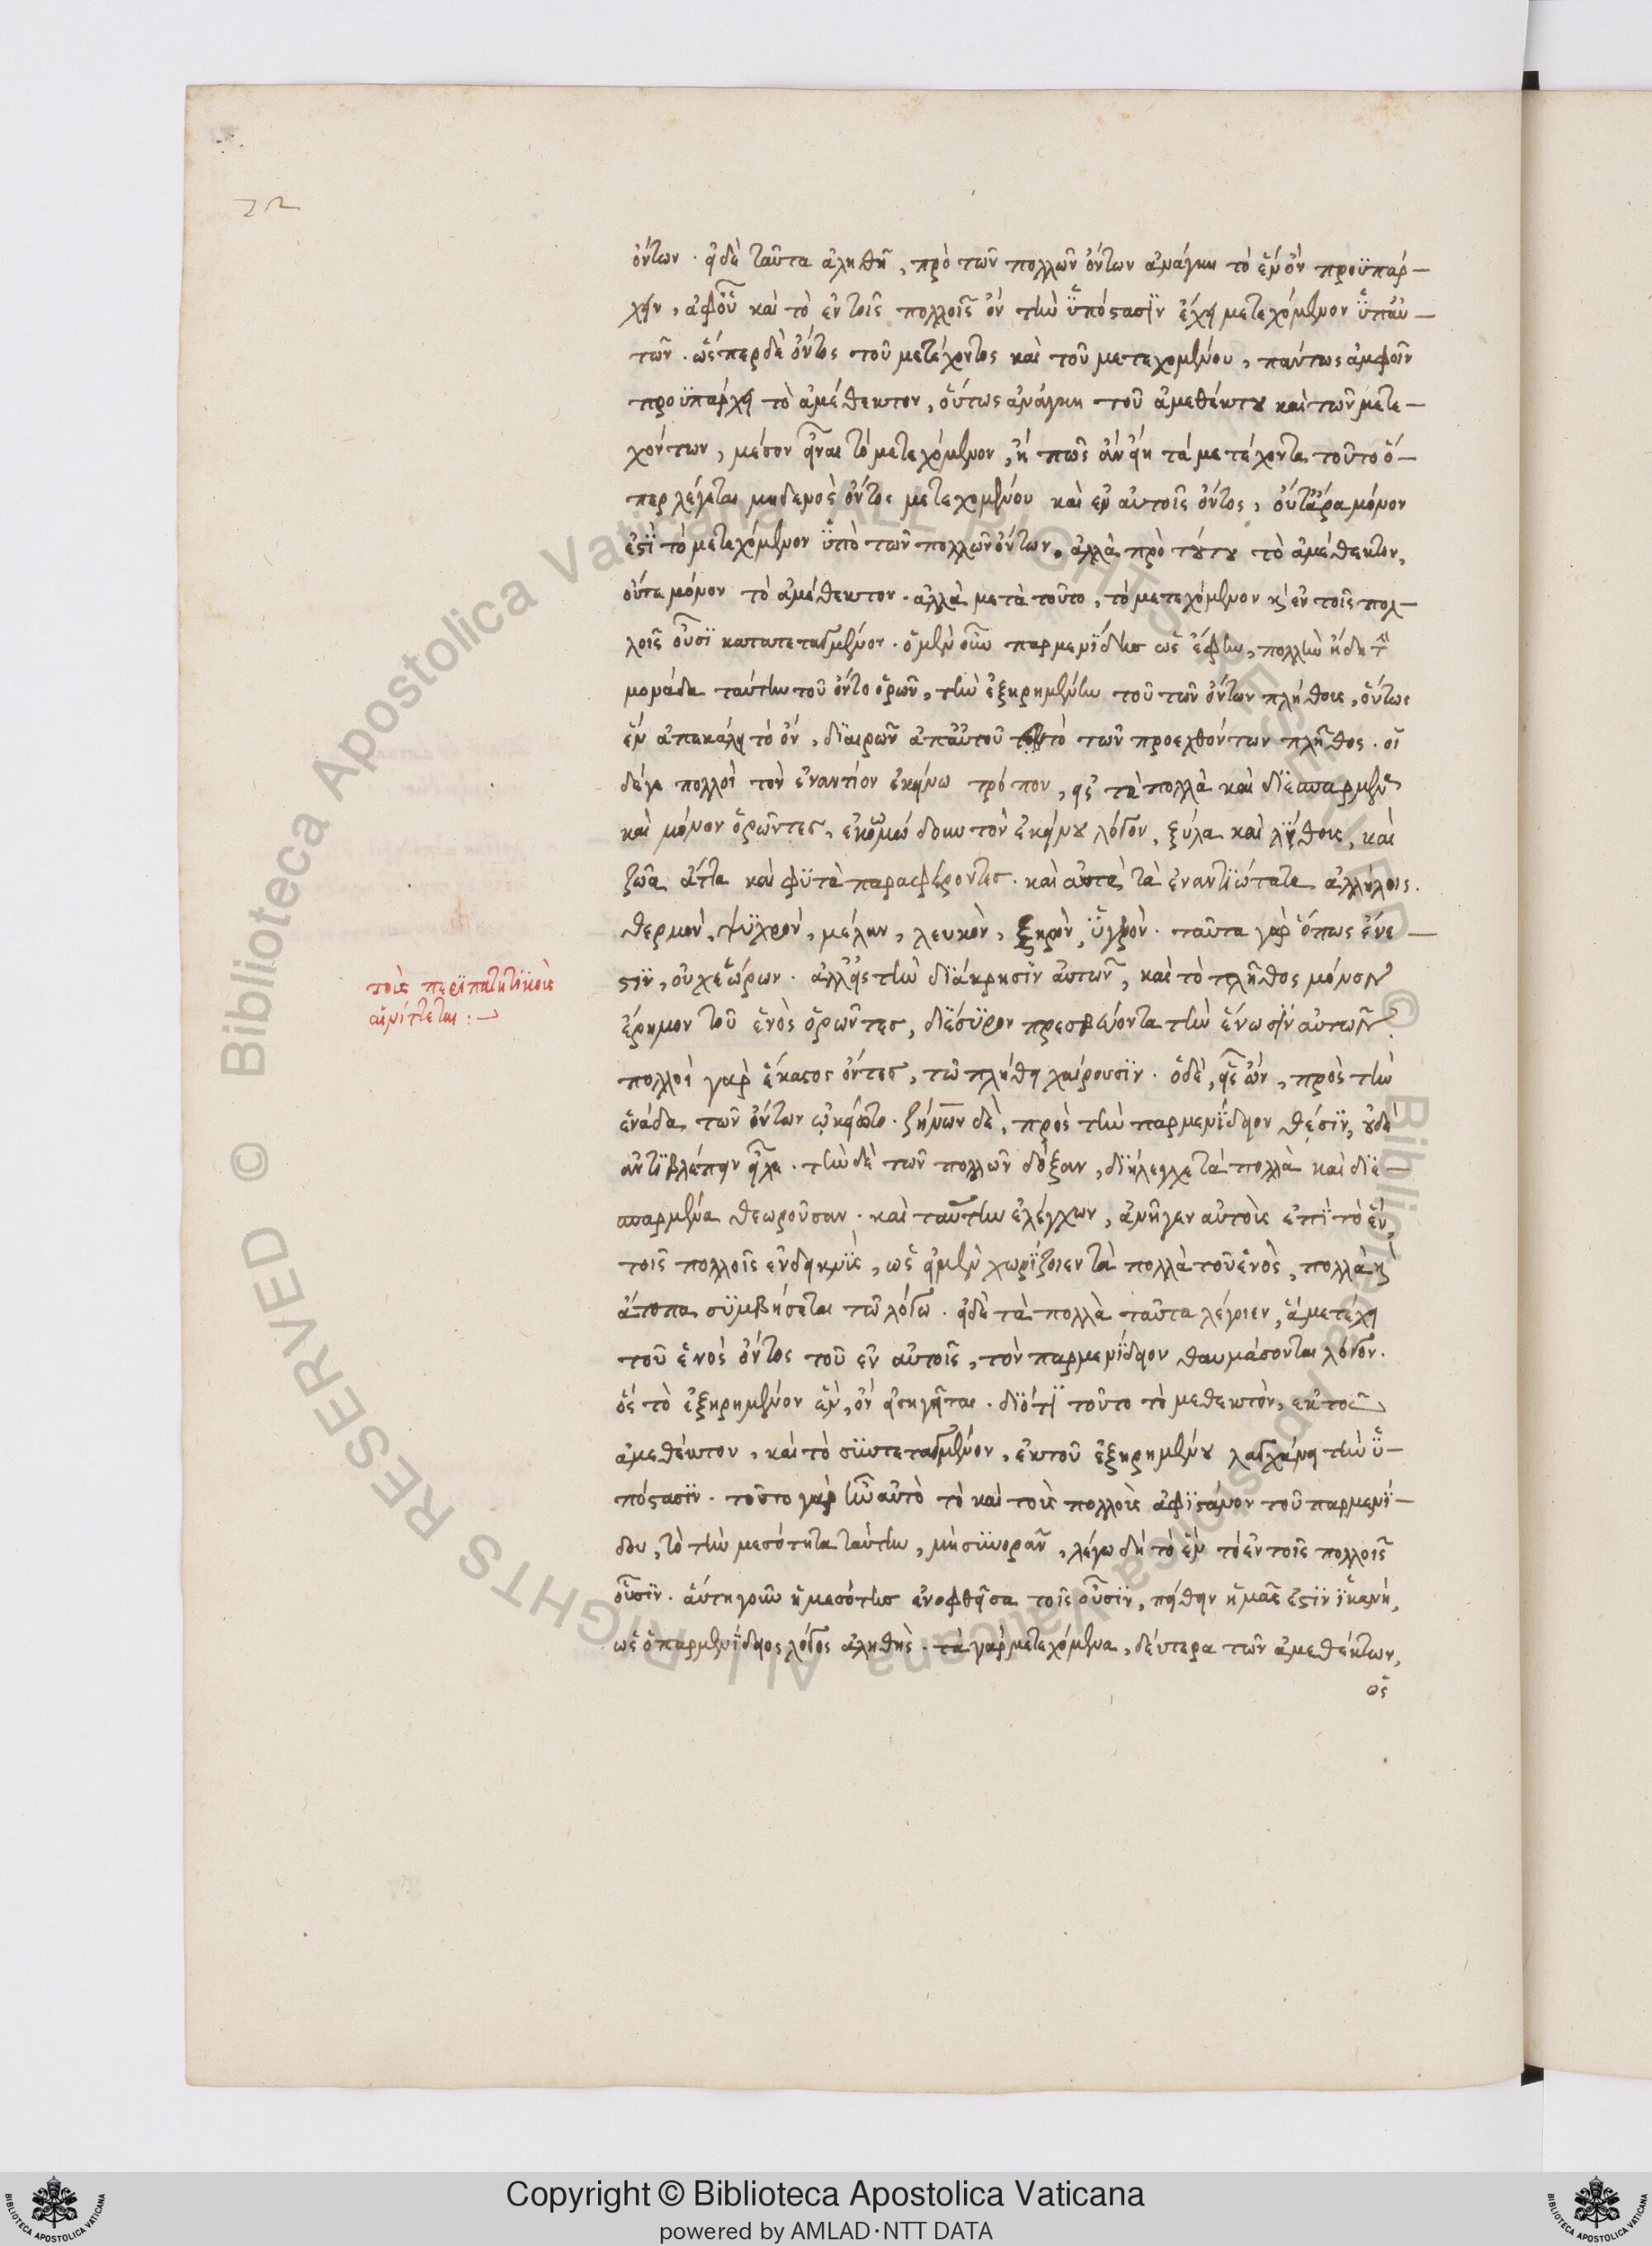 ὄντων. εἰ δὲ ταῦτα ἀληθῆ, πρὸ τῶν πολλῶν ὄντων ἀνάγκη τὸ ἓν ὂν προϋπάρ-
χειν, ἀφ' οὗ καὶ τὸ ἐν τοῖς πολλοῖς ὂν τὴν ὑπόστασιν ἔχει μετεχόμενον ὑπ' αὐ-
τῶν. ὥσπερ δὲ ὄντος τοῦ μετέχοντος καὶ τοῦ μετεχομένου, πάντως ἀμφοῖν
προϋπάρχει τὸ ἀμέθεκτον, οὕτως ἀνάγκη τοῦ ἀμεθέκτου καὶ τῶν μετε-
χόντων, μέσον εἶναι τὸ μετεχόμενον, ἢ πῶς ἂν εἴη τὰ μετέχοντα τοῦτο ὅ-
περ λέγεται μηδενὸς ὄντος μετεχομένου καὶ ἐν αὐτοῖς ὄντος, οὔτ' ἄρα μόνον
ἐστὶ τὸ μετεχόμενον ὑπὸ τῶν πολλῶν ὄντων, ἀλλὰ πρὸ τούτου τὸ ἀμέθεκτον,
οὔτε μόνον τὸ ἀμέθεκτον. ἀλλὰ μετὰ τοῦτο, τὸ μετεχόμενον κ' ἐν τοῖς πολ-
λοῖς οὖσι κατατεταγμένον. ὁ μὲν οὖν παρμενίδης ὡς ἔφην, πολλὴν ἤδη τ
μονάδα ταύτην τοῦ ὄντος ὁρῶν, τὴν ἐξῃρημένην τοῦ τῶν ὄντων πλήθους, οὕτως
ἓν ἀπεκάλει τὸ ὄν, διαιρῶν ἀπ' αὐτοῦ τὸ τῶν προελθόντων πλῆθος. οἱ
δέ γε πολλοὶ τὸν ἐναντίον ἐκείνω τρόπον, εἰς τὰ πολλὰ καὶ διεσπαρμένα
καὶ μόνον ὁρῶντες, ἐκωμώδουν τὸν ἐκείνου λόγον, ξύλα καὶ λίθους, καὶ
ζῶα ἄττα καὶ φυτὰ παραφέροντες. καὶ αὐτὰ τὰ ἐναντιώτατα ἀλλήλοις.
θερμὸν, ψυχρὸν, μέλαν, λευκὸν, ξηρὸν, ὑγρὸν. ταῦτα γὰρ ὅπως ἕνε-
στιν, οὐχ ἑώρων. ἀλλ' εἰς τὴν διάκρισιν αὐτῶν, καὶ τὸ πλῆθος μόνον
ἔρημον τοῦ ἑνὸς ὁρῶντες, διέσυρον πρεσβεύοντα τὴν ἕνωσιν αὐτῶν
πολλοὶ γὰρ ἕκαστος ὄντες, τῶ πλήθει χαίρουσιν. ὁ δὲ, εἷς ὢν, πρὸς τὴν
ἑνάδα τῶν ὄντων ὠκείωτο. ζήνων δὲ, πρὸς τὴν παρμενίδειον θέσιν, οὐδὲ
ἀντιβλέπειν εἶχε. τὴν δὲ τῶν πολλῶν δόξαν, διήλεγχε τὰ πολλὰ καὶ διε-
σπαρμένα θεωροῦσαν. καὶ ταύτην ἐλέγχων, ἀνῆγεν αὐτοὺς ἐπὶ τὸ ἓν,
τοῖς πολλοῖς ἐνδεικνὺς, ὡς εἰ μὲν χωρίζοιεν τὰ πολλὰ τοῦ ἑνὸς, πολλὰ κ
ἄτοπα συμβήσεται τῶ λόγω. εἰ δὲ τὰ πολλὰ ταῦτα λέγοιεν, ἃ μετέχει
τοῦ ἑνὸς ὄντος τοῦ ἐν αὐτοῖς, τὸν παρμενίδειον θαυμάσονται λόγον.
ὃς τὸ ἐξῃρημένον ἓν, ὂν εἰσηγεῖται. διότι τοῦτο τὸ μεθεκτὸν, ἐκ τοῦ
ἀμεθέκτου, καὶ τὸ συντεταγμένον, ἐκ τοῦ ἐξῃρημένου λαγχάνει τὴν ὑ-
πόστασιν. τοῦτο γὰρ ἦν αὐτὸ τὸ καὶ τοὺς πολλοὺς ἀφιστάνον τοῦ παρμενί-
δου, τὸ τὴν μεσότητα ταύτην, μὴ συνορᾶν, λέγω δὴ τὸ ἓν τὸ ἐν τοῖς πολλοῖς
οὖσιν. αὕτη γοῦν ἡ μεσότης ἐνοφθεῖσα τοῖς οὖσιν, πείθειν ἡμᾶς ἐστιν ἱκανή,
ὡς ὁ παρμενίδειος λόγος ἀληθὴς. τὰ γὰρ μετεχόμενα, δεύτερα τῶν ἀμεθέκτων,
ὡς
τοὺς περιπατητικοὺς
αἰνίττεται: